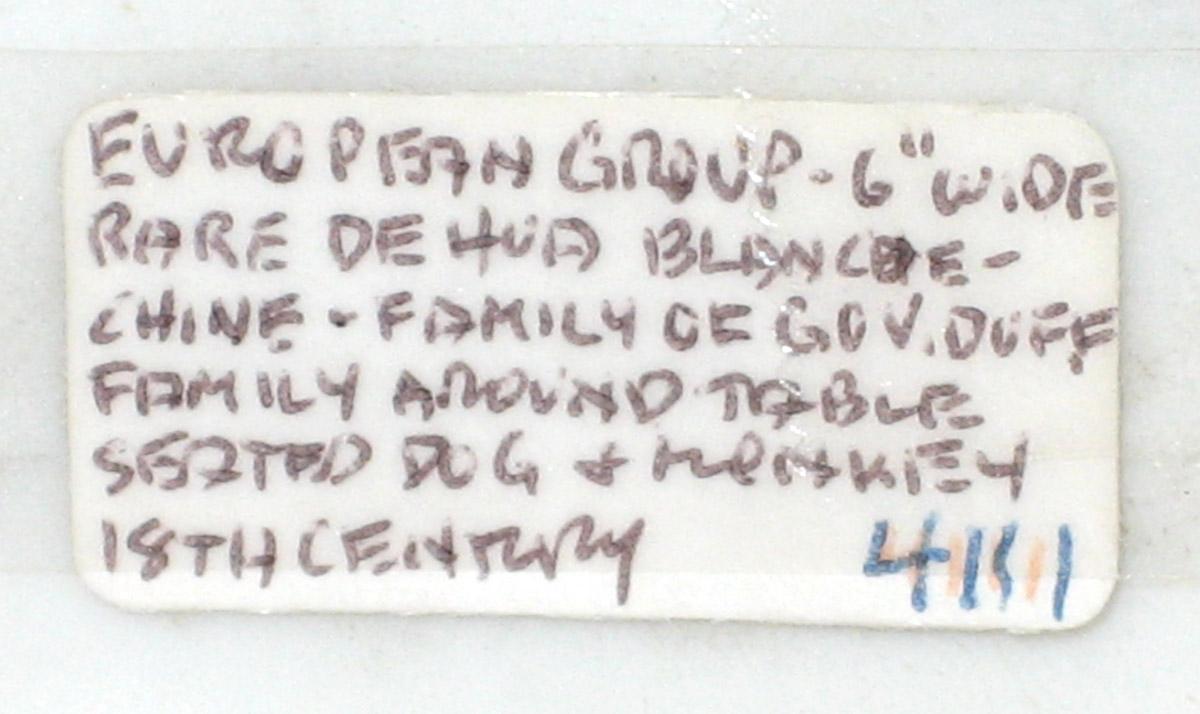 EUROPEAN GROUP - 6" WIDE
RARE DE HUA BLANC DE -
CHINE - FAMILY OF GOV. DUFF
FAMILY AROUND TABLE
SEATED DOG + MONKEY
18TH CENTURY